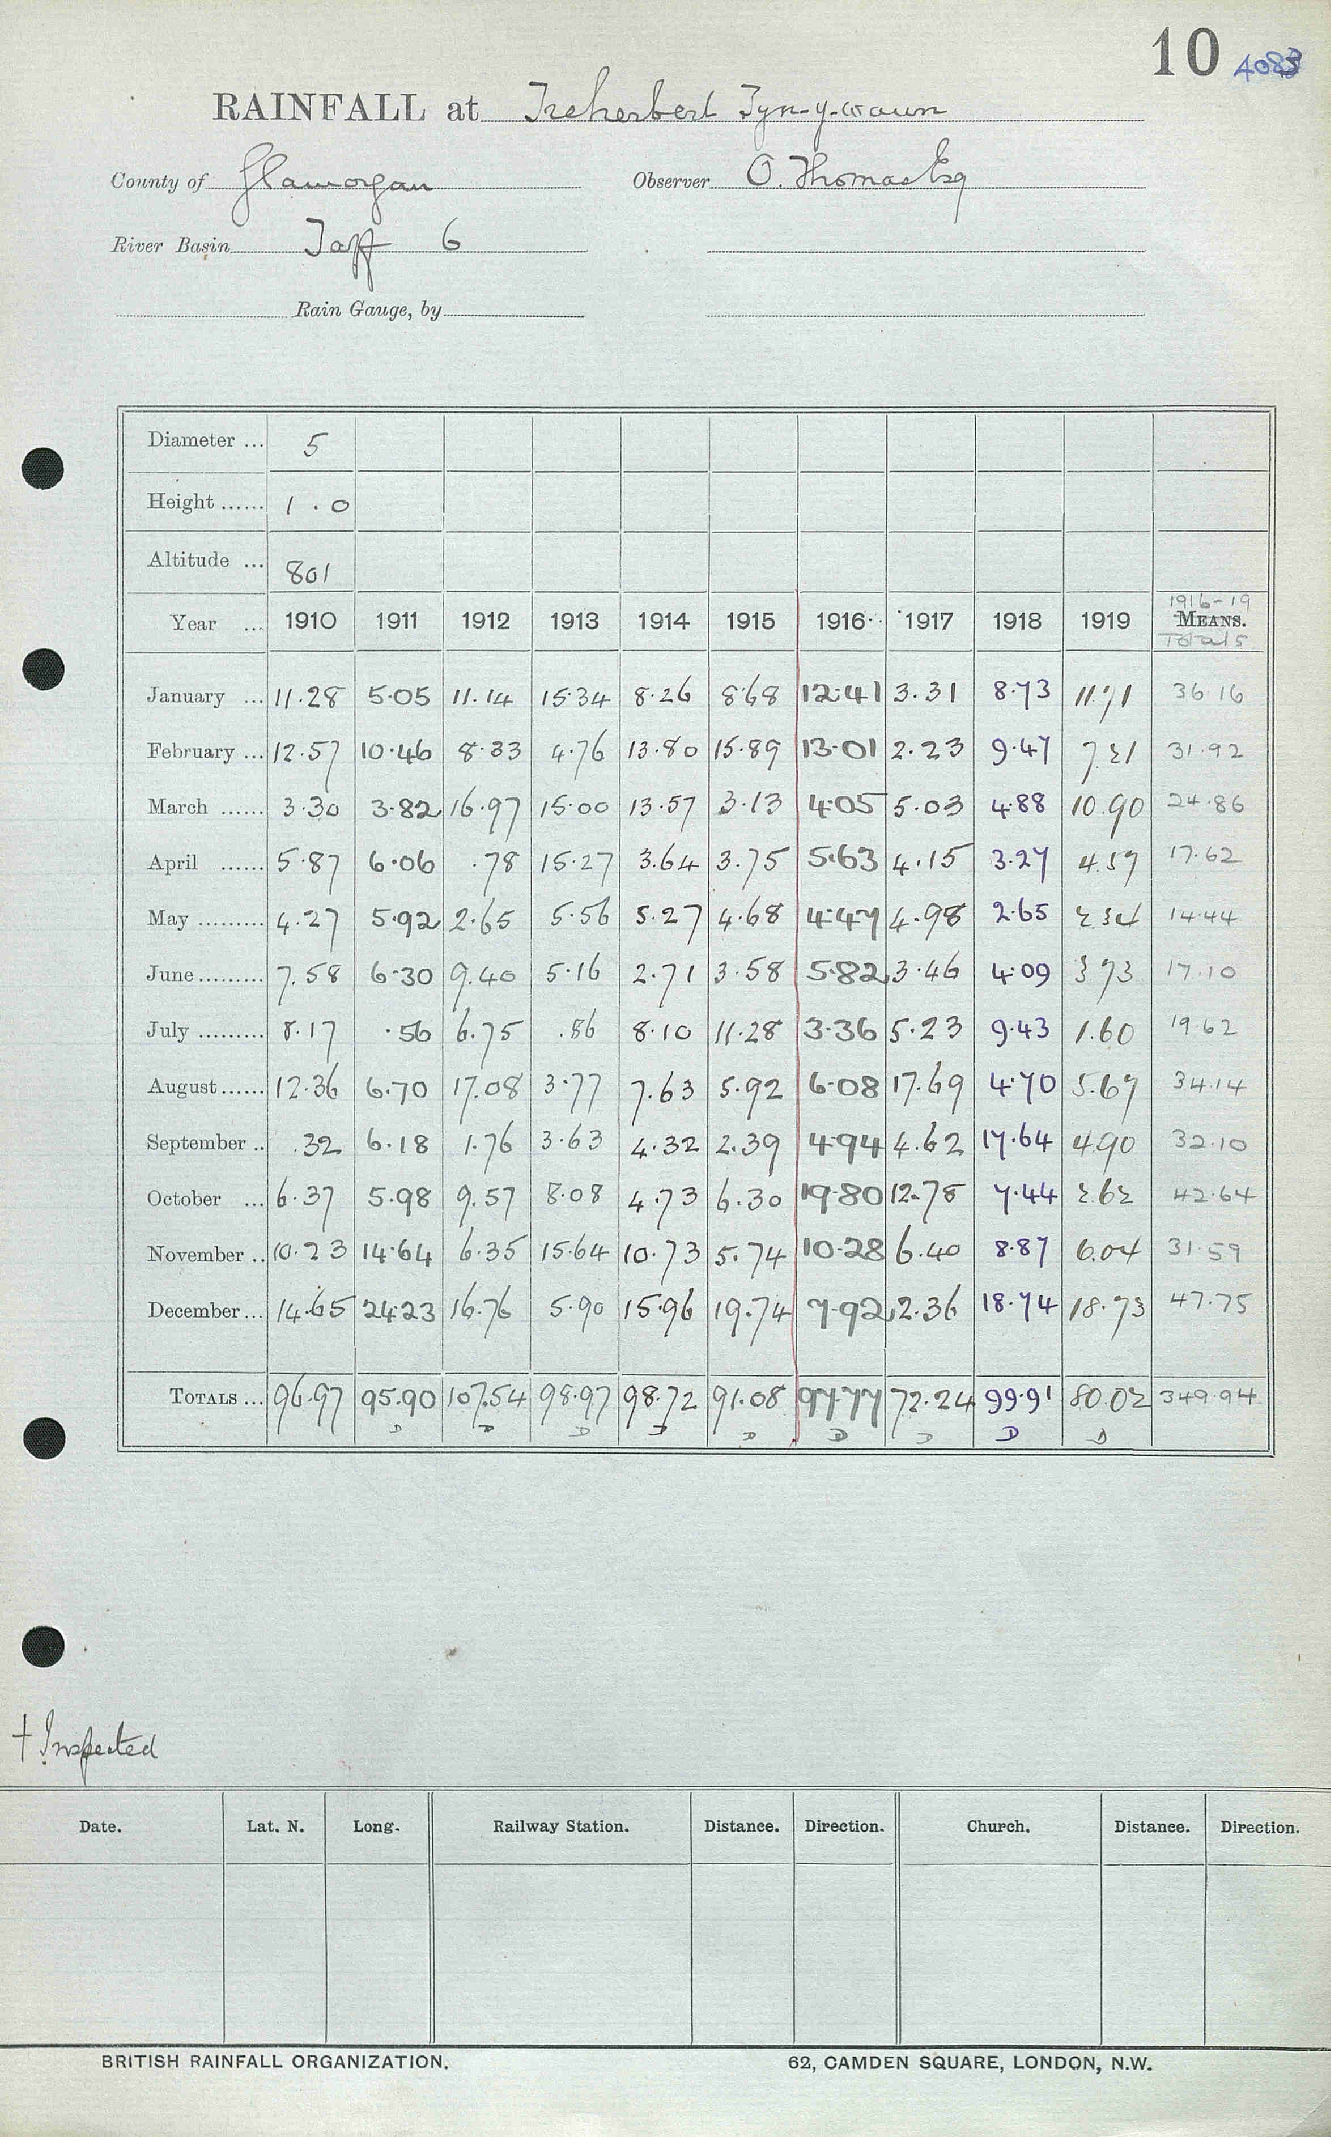 10 4083
RAINFALL at Treherbert Tyn-y-waun
County of Glamorgan Observer O. Thomas Esq
River Basin Taff 6
Rain Gauge, by
Diameter ... 5
Height ...... 1.0
Altitude ... 801
Year ... 1910 1911 1912 1913 1914 1915 1916 1917 1918 1919 1916-19 MEANS. Totals
January ... 11.28 5.05 11.14 15.34 8.26 8.68 12.41 3.31 8.73 11.71 36.16
February ... 12.57 10.46 8.33 4.76 13.80 15.89 13.01 2.23 9.47 7.21 31.92
March ...... 3.30 3.82 16.97 15.00 13.57 3.13 4.05 5.03 4.88 10.90 24.86
April ...... 5.87 6.06 .78 15.27 3.64 3.75 5.63 4.15 3.27 4.57 17.62
May ......... 4.27 5.92 2.65 5.56 5.27 4.68 4.47 4.98 2.65 2.34 14.44
June ......... 7.58 6.30 9.40 5.16 2.71 3.58 5.82 3.46 4.09 3.73 17.10
July ......... 8.17 .56 6.75 .86 8.10 11.28 3.36 5.23 9.43 1.60 19.62
August ...... 12.36 6.70 17.08 3.77 7.63 5.92 6.08 17.69 4.70 5.67 34.14
September .. .32 6.18 1.76 3.63 4.32 2.39 4.94 4.62 17.64 4.90 32.10
October ... 6.37 5.98 9.57 8.08 4.73 6.30 19.80 12.78 7.44 2.62 42.64
November .. 10.23 14.64 6.35 15.64 10.73 5.74 10.28 6.40 8.87 6.04 31.59
December ... 14.65 24.23 16.76 5.90 15.96 19.74 7.92 2.36 18.74 18.73 47.75
TOTALS ... 96.97 95.90 107.54 98.97 98.72 91.08 97.77 72.24 99.91 80.02 349.94
D D D D D D D D D
† Inspected
Date. Lat. N. Long. Railway Station. Distance. Direction. Church. Distance. Direction.
BRITISH RAINFALL ORGANIZATION. 62, CAMDEN SQUARE, LONDON, N.W.